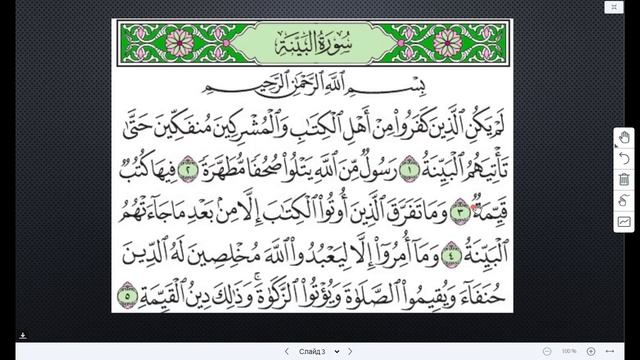 سُورَةُ الْبَيِّنَةِ
بِسْمِ اللَّهِ الرَّحْمَٰنِ الرَّحِيمِ
لَمْ يَكُنِ الَّذِينَ كَفَرُوا مِنْ أَهْلِ الْكِتَابِ وَالْمُشْرِكِينَ مُنفَكِّينَ حَتَّىٰ
تَأْتِيَهُمُ الْبَيِّنَةُ ١ رَسُولٌ مِّنَ اللَّهِ يَتْلُوا صُحُفًا مُّطَهَّرَةً ٢ فِيهَا كُتُبٌ
قَيِّمَةٌ ٣ وَمَا تَفَرَّقَ الَّذِينَ أُوتُوا الْكِتَابَ إِلَّا مِنۢ بَعْدِ مَا جَاءَتْهُمُ
الْبَيِّنَةُ ٤ وَمَا أُمِرُوا إِلَّا لِيَعْبُدُوا اللَّهَ مُخْلِصِينَ لَهُ الدِّينَ
حُنَفَاءَ وَيُقِيمُوا الصَّلَوٰةَ وَيُؤْتُوا الزَّكَوٰةَ ۚ وَذَٰلِكَ دِينُ الْقَيِّمَةِ ٥
Слайд 3
100 %